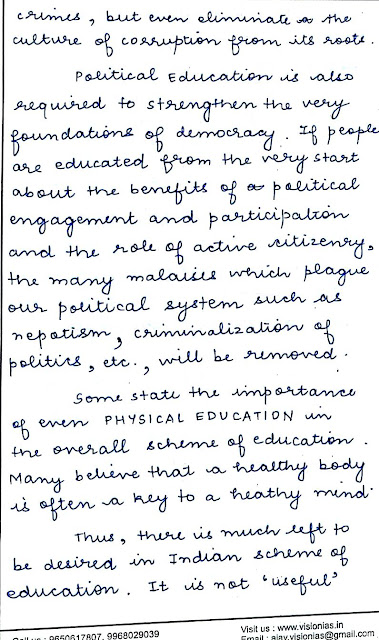 crimes, but even eliminate the
culture of corruption from its roots.
Political Education is also
required to strengthen the very
foundations of democracy. If people
are educated from the very start
about the benefits of political
engagement and participation
and the role of active citizenry,
the many malaises which plague
our political system such as
nepotism, criminalization of
politics, etc., will be removed.
Some state the importance
of even PHYSICAL EDUCATION in
the overall scheme of education.
Many believe that a healthy body
is often a key to a heathy mind.
Thus, there is much left to
be desired in Indian scheme of
education. It is not 'useful'
9650617807, 9968029039
Visit us : www.visionias.in
Email : ajay.visionias@gmail